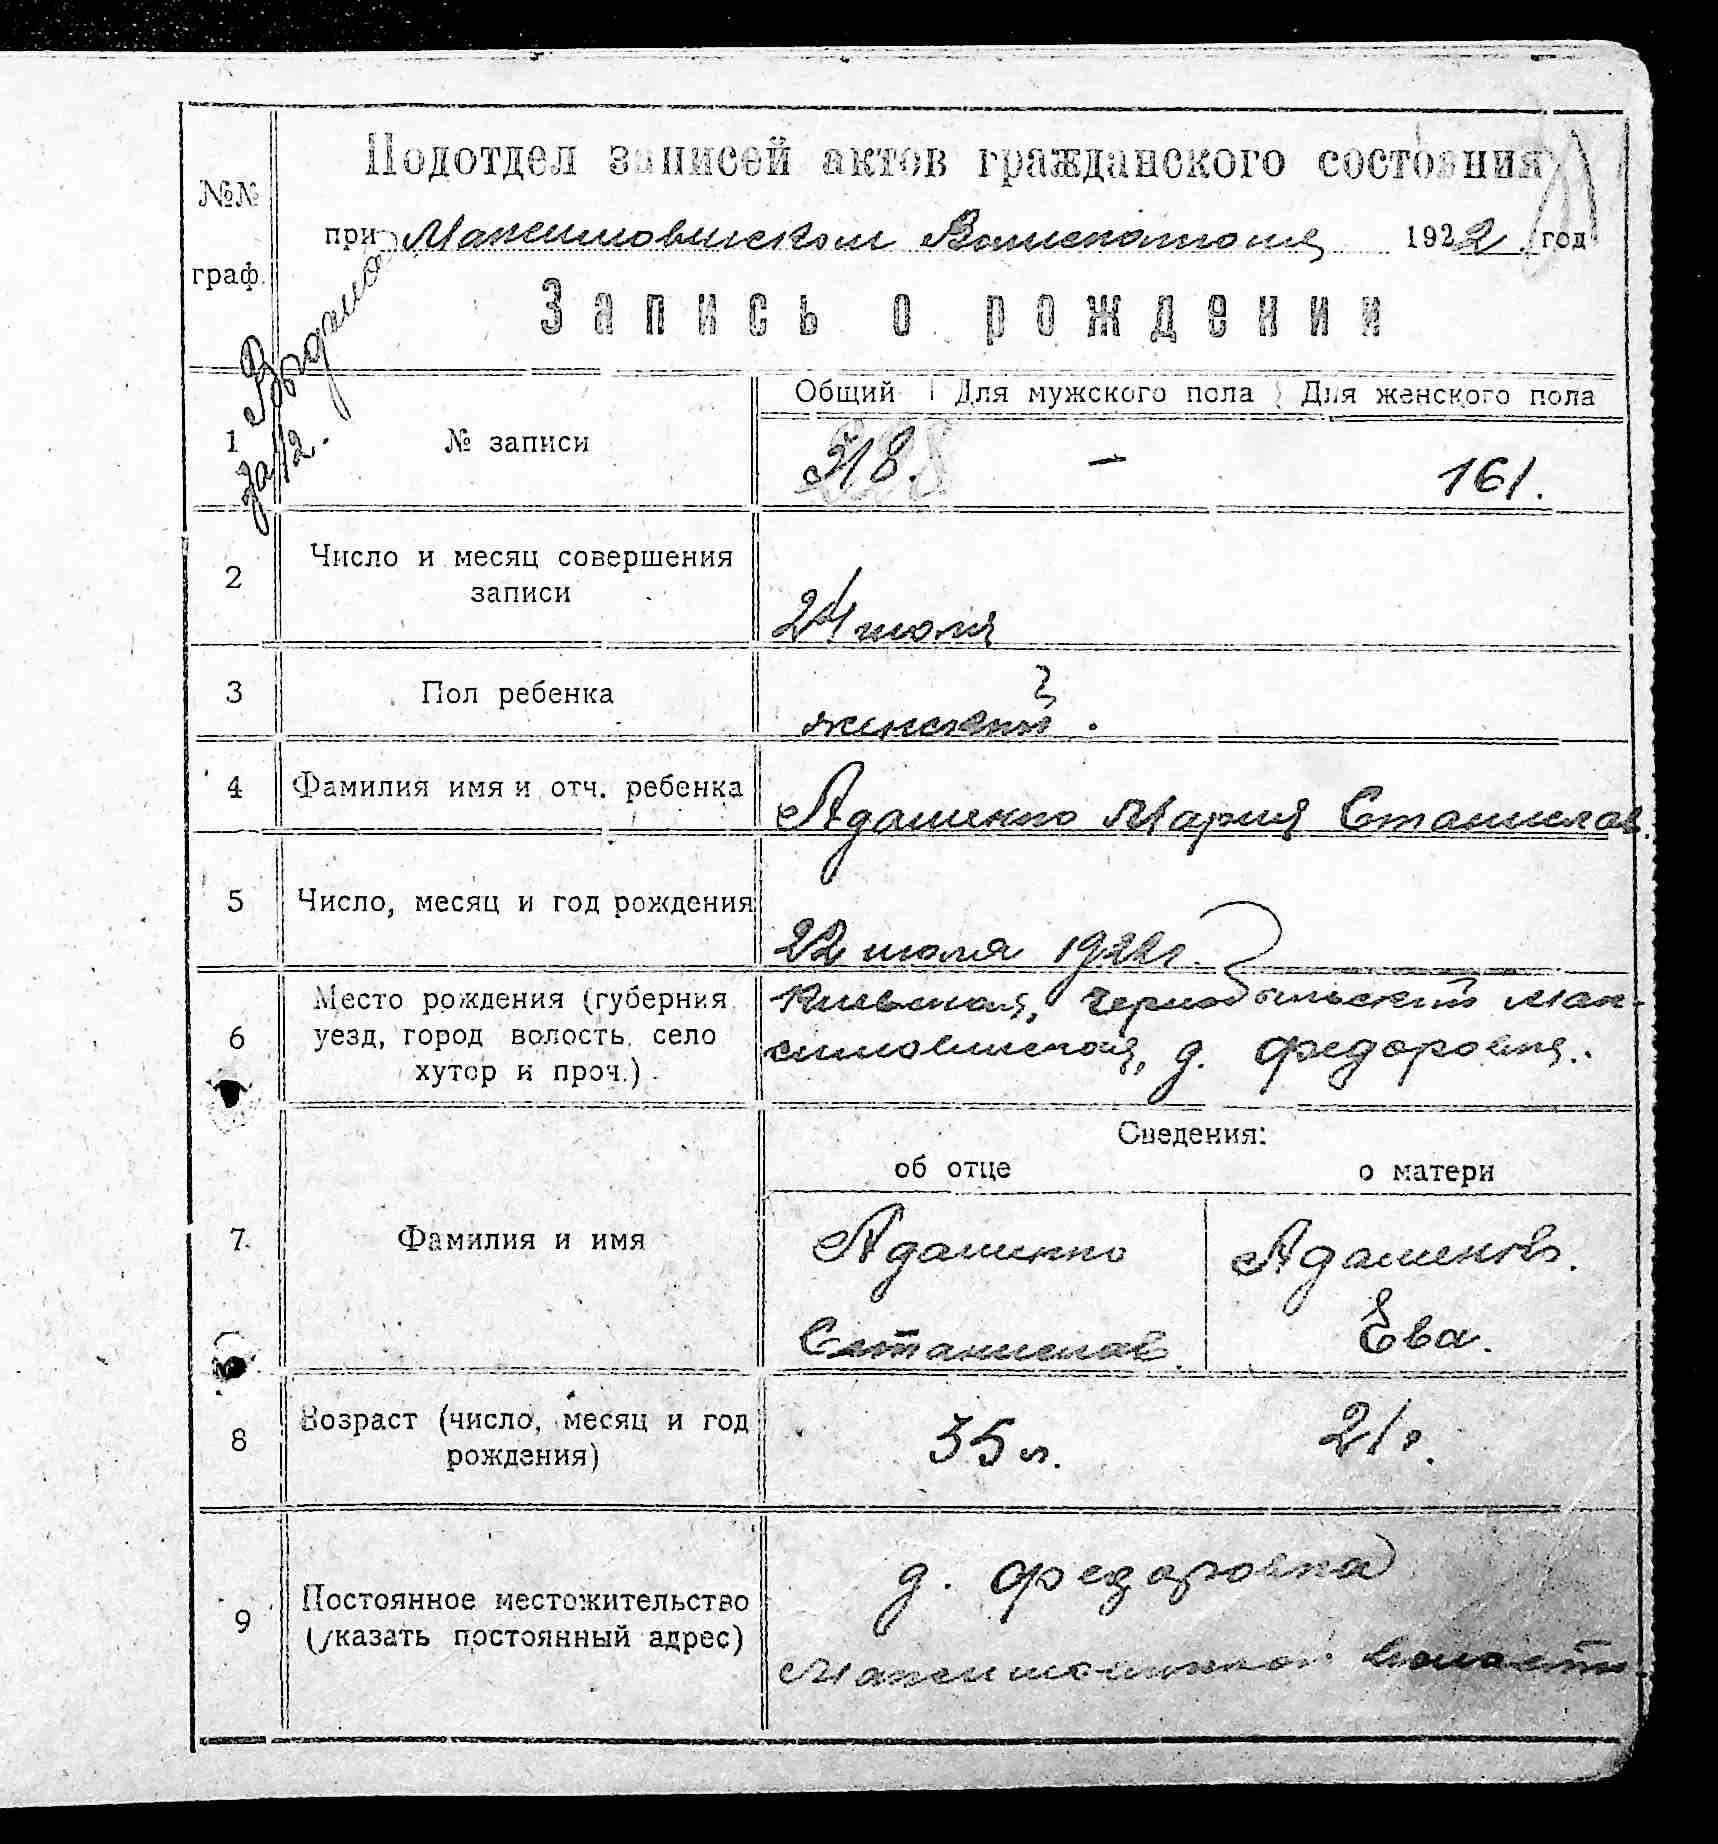 №№
граф.
Подотдел записей актов гражданского состояния
при Максимовическом Волисполкоме 1922 год
Запись о рождении
Выдано
за 12.
Общий Для мужского пола Для женского пола
1 № записи 318. — 161.
2 Число и месяц совершения
записи
24 июля
3 Пол ребенка женский.
4 Фамилия имя и отч. ребенка Адаменко Мария Станислав.
5 Число, месяц и год рождения 22 июля 1922 г.
6 Место рождения (губерния
уезд, город волость село
хутор и проч.)
Киевская, Чернобыльский Мак-
симовическая, д. Федоровка.
Сведения:
об отце о матери
7 Фамилия и имя Адаменко Адаменков.
Станислав Ева.
8 Возраст (число, месяц и год
рождения)
35 л. 21 г.
9 Постоянное местожительство
(указать постоянный адрес)
д. Федоровка
Максимовичской волости.